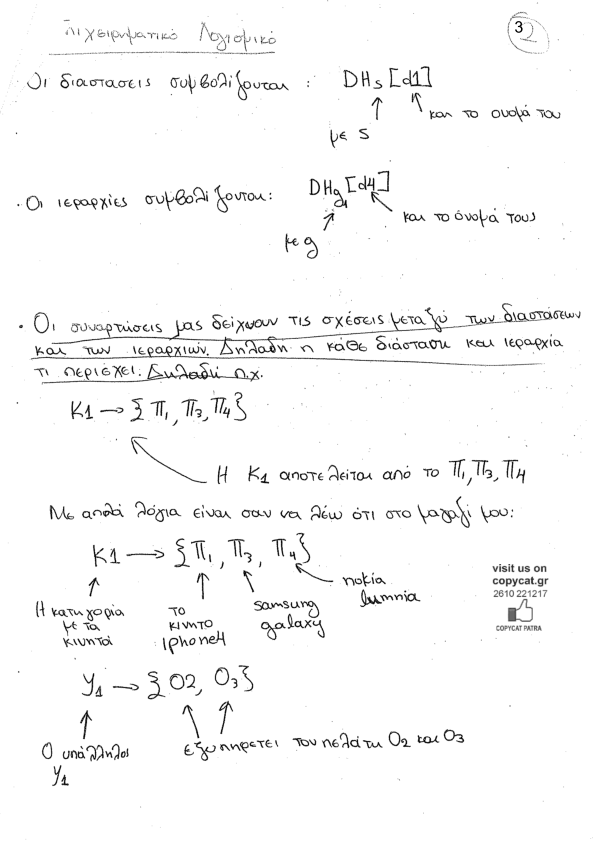 Επιχειρηματικό Λογισμικό
3
Οι διαστασεις συμβολίζονται : DHs [d1]
με s
και το ονομά του
· Οι ιεραρχίες συμβολίζονται: DHg1 [d4]
με g
και το όνομά τους
· Οι συναρτήσεις μας δείχνουν τις σχέσεις μεταξύ των διαστάσεων
και των ιεραρχιών. Δηλαδή η κάθε διάσταση και ιεραρχία
τι περιέχει. Δηλαδή π.χ.
K1 → {Π1, Π3, Π4}
Η K1 αποτελείται από το Π1, Π3, Π4
Με απλά λόγια είναι σαν να λέω ότι στο μαγαζί μου:
K1 → {Π1, Π3, Π4}
Η κατηγορία
με τα
κινητά
το
κινητο
iphone4
samsung
galaxy
nokia
lumnia
visit us on
copycat.gr
2610 221217
COPYCAT PATRA
Y1 → {O2, O3}
Ο υπάλληλος
Y1
εξυπηρετει τον πελάτη O2 και O3